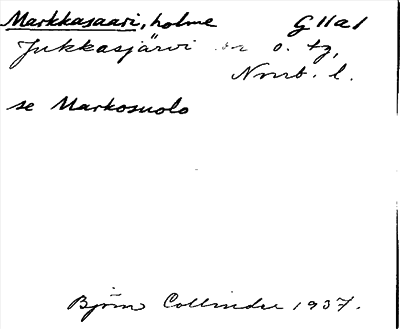 Markkasaari, holme G 11 a 1
Jukkasjärvi sn o. tg,
Norrb. l.
se Markosuolo
Björn Collinder 1937.